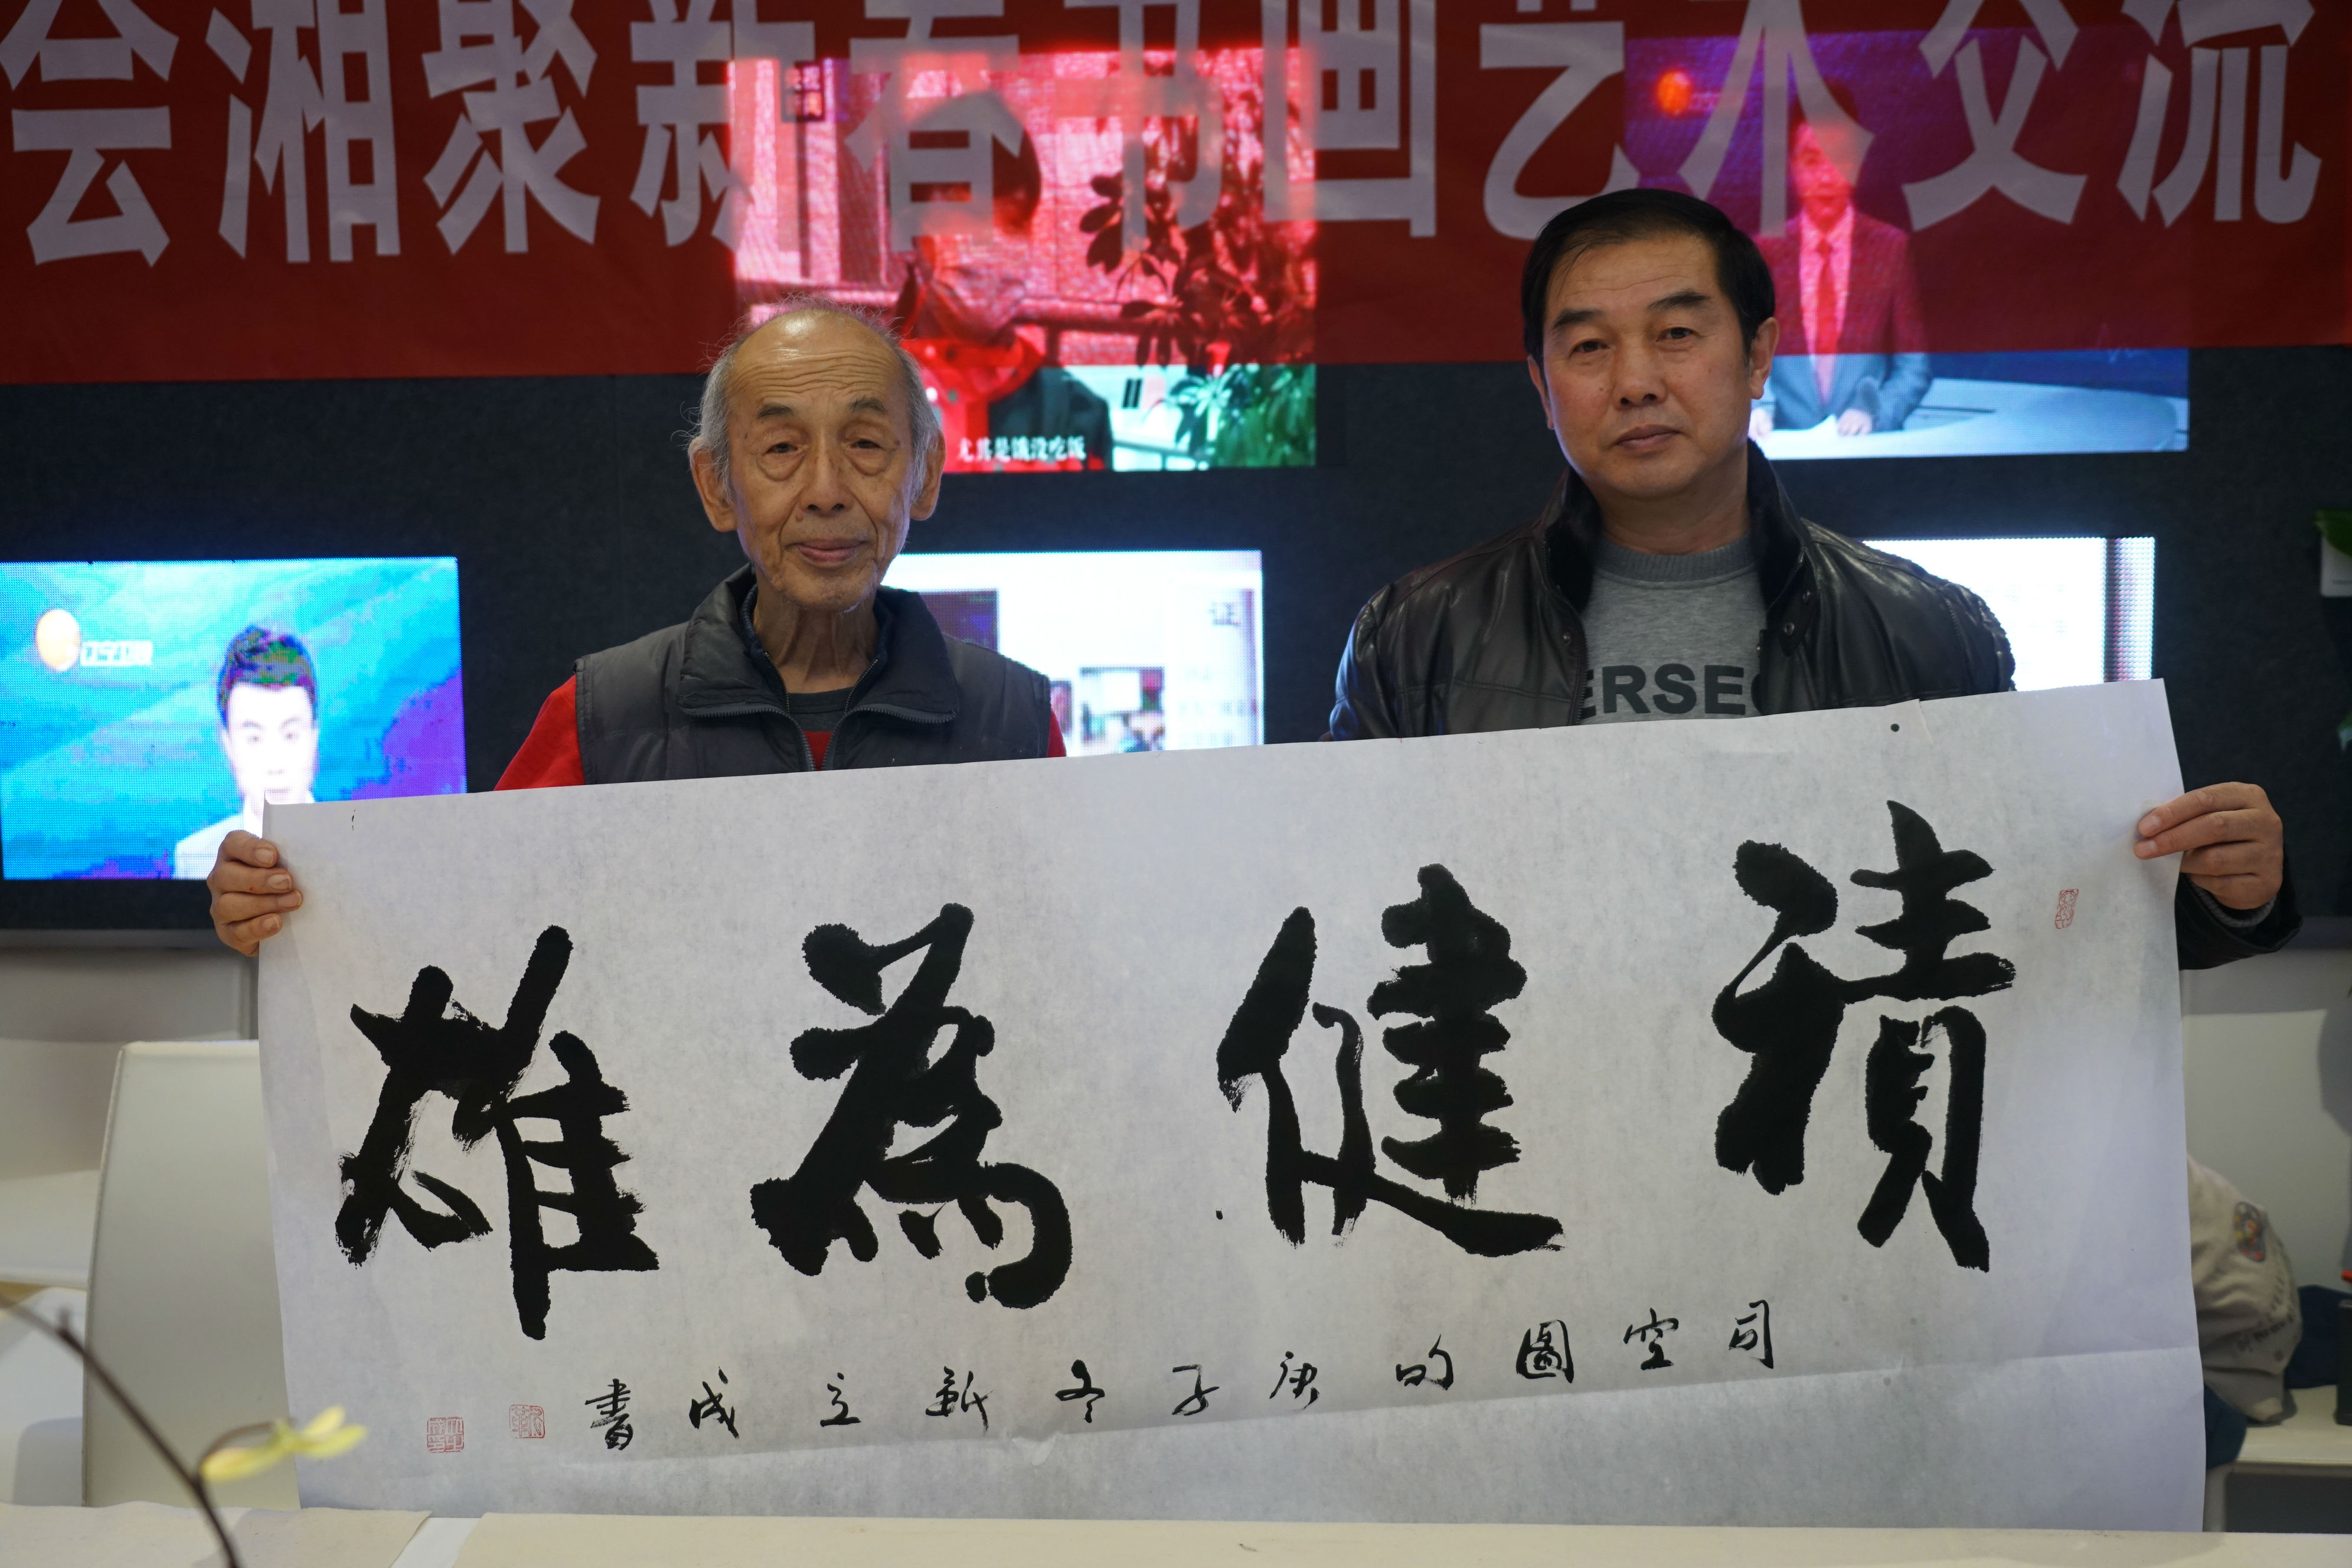 会湘聚新春书画艺术交流
尤其是饿没吃饭
证
ERSE
積健為雄
司空圖句庚子冬
立成書